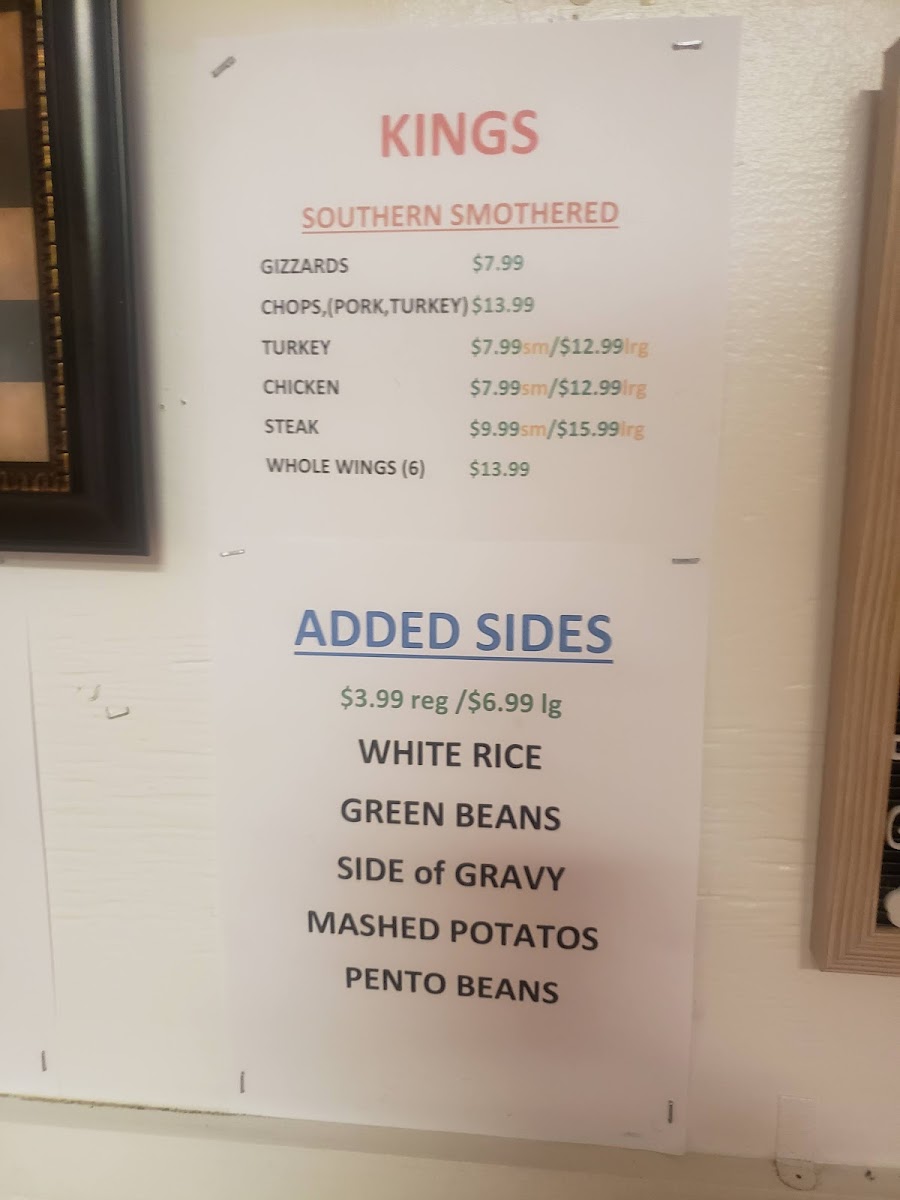 KINGS
SOUTHERN SMOTHERED
GIZZARDS $7.99
CHOPS,(PORK,TURKEY) $13.99
TURKEY $7.99sm/$12.99lrg
CHICKEN $7.99sm/$12.99lrg
STEAK $9.99sm/$15.99lrg
WHOLE WINGS (6) $13.99
ADDED SIDES
$3.99 reg /$6.99 lg
WHITE RICE
GREEN BEANS
SIDE of GRAVY
MASHED POTATOS
PENTO BEANS